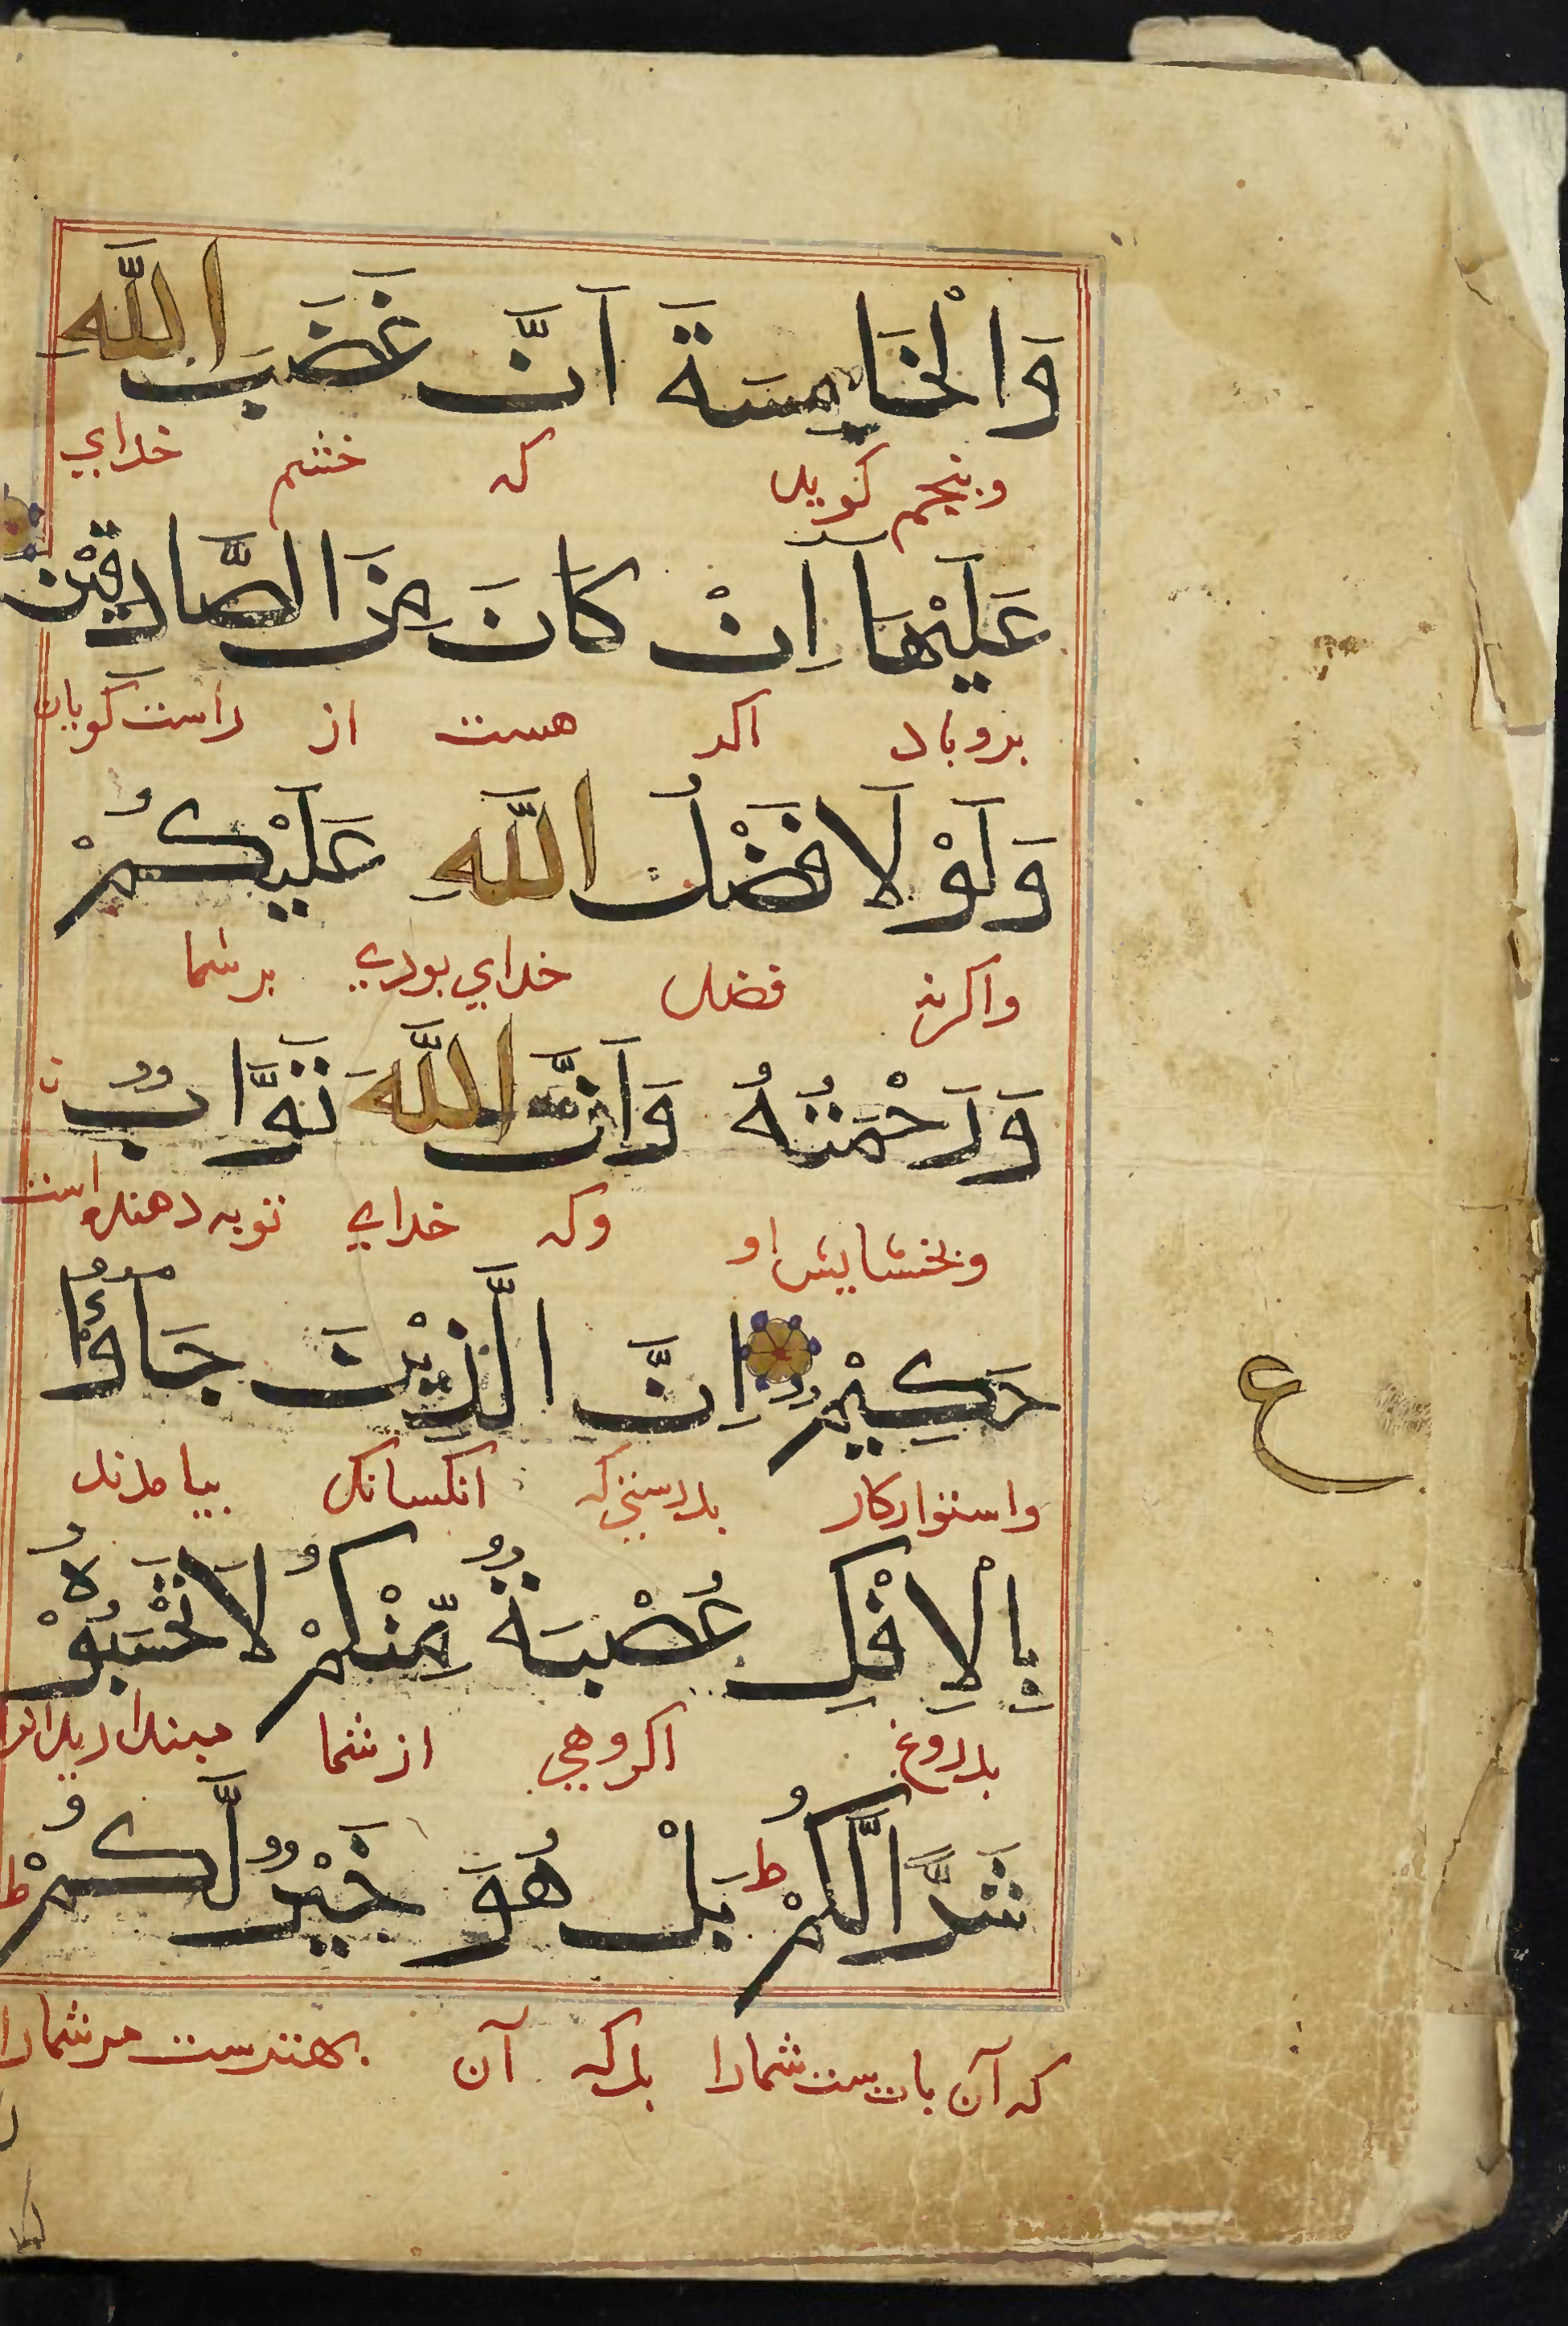 وَالْخَامِسَةَ اَنَّ غَضَبَ اللّٰهِ
وپنجم کوید که خشم خدای
عَلَيْهَا اِنْ كَانَ مِنَ الصَّادِقِيْنَ
بروباد اکر هست از راست کویان
وَلَوْ لَا فَضْلُ اللّٰهِ عَلَيْكُمْ
واکرنه فضل خدای بودی برشما
وَرَحْمَتُهُ وَاَنَّ اللّٰهَ تَوَّابٌ
وبخشایش او وکه خدای توبه دهنده است
حَكِيْمٌ اِنَّ الَّذِيْنَ جَاؤُا
واستوارکار بدرستی که انکسانک بیامدند
ع
بِالْاِفْكِ عُصْبَةٌ مِّنْكُمْ لَا تَحْسَبُوْهُ
بدروغ اکروهی ازشما مپندارید انرا
شَرًّا لَّكُمْ ط بَلْ هُوَ خَيْرٌ لَّكُمْ ط
که آن شمارا بلکه آن بهترست مرشمارا